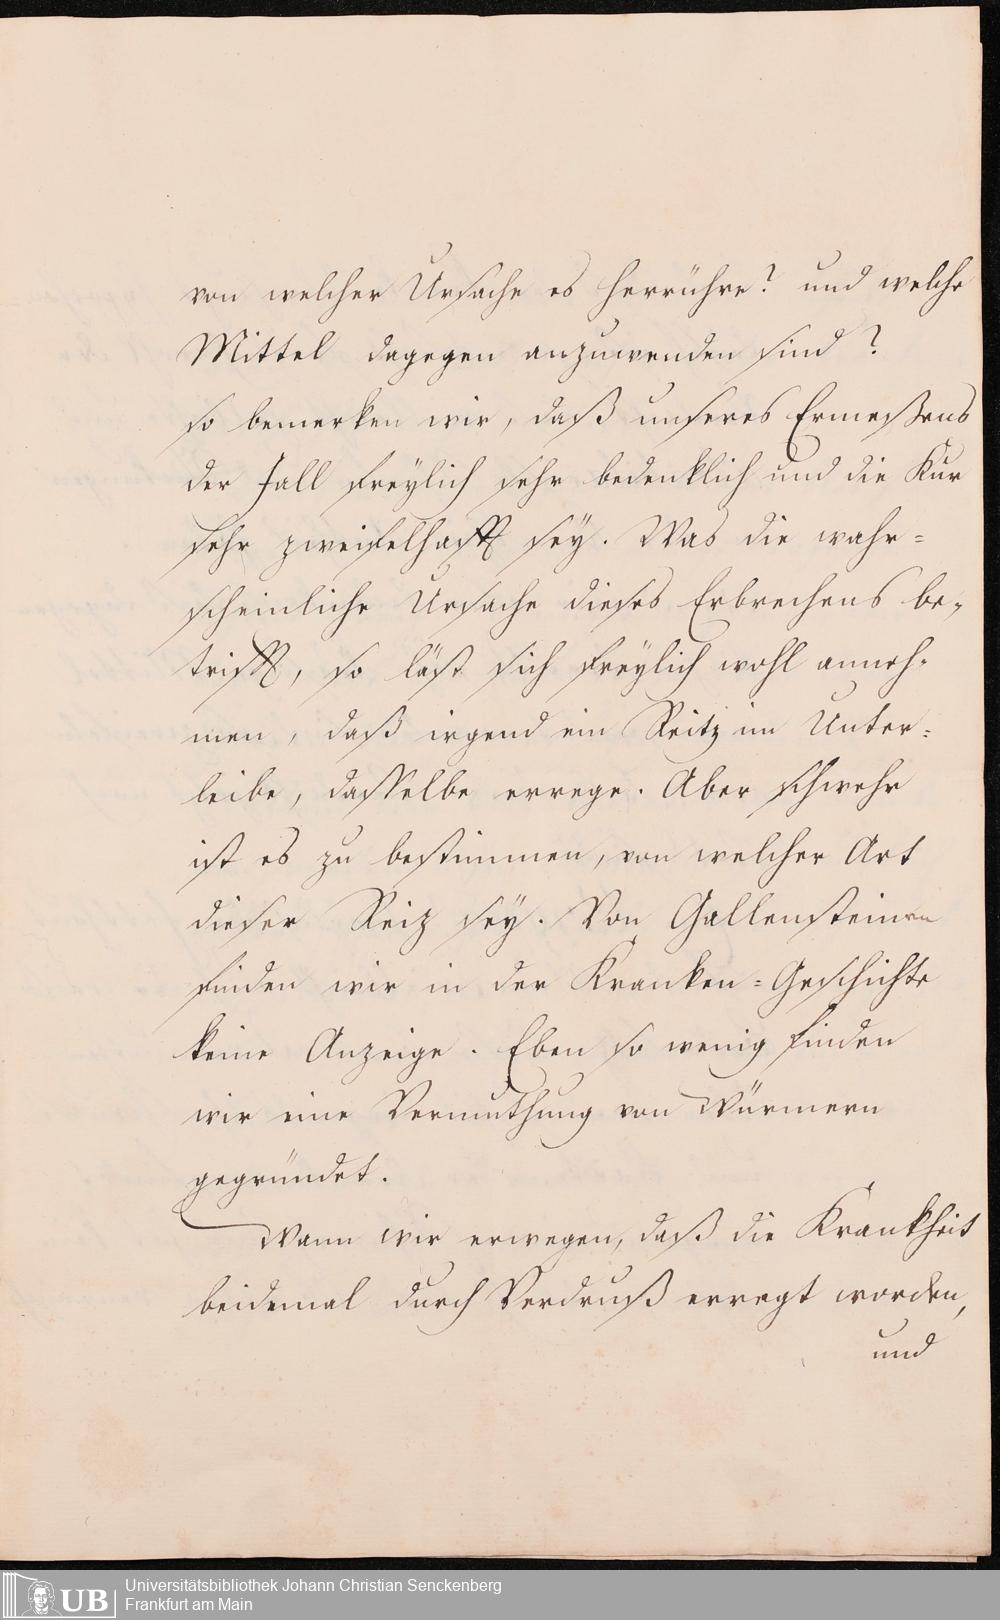 von welcher Ursache es herrühre? und welche
Mittel dagegen anzuwenden sind?
so bemerken wir, daß unseres Ermeßens
der Fall freÿlich sehr bedenklich und die Kur
sehr zweifelhafft seÿ. Was die wahr=
scheinliche Ursache dieses Erbrechens be=
trifft, so läst sich freÿlich wohl anneh=
men, daß irgend ein Reitz im Unter=
leibe, dasselbe errege. Aber schwehr
ist es zu bestimmen, von welcher Art
dieser Reiz seÿ. Von Gallensteinen
finden wir in der Kranken=Geschichte
keine Anzeige. Eben so wenig finden
wir eine Vermuthung von Würmern
gegründet.
Wann wir erwegen, daß die Krankheit
beidemal durch Verdruß erregt worden,
und
UB
Universitätsbibliothek Johann Christian Senckenberg
Frankfurt am Main